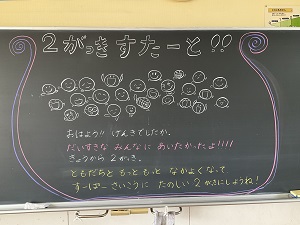 2がっきすたーと!!
おはよう!! げんきでしたか。
だいすきな みんなに あいたかったよ!!!!
きょうから 2がっき。
ともだちと もっと もっと なかよくなって
すーぱー さいこうに たのしい 2がっきにしようね!